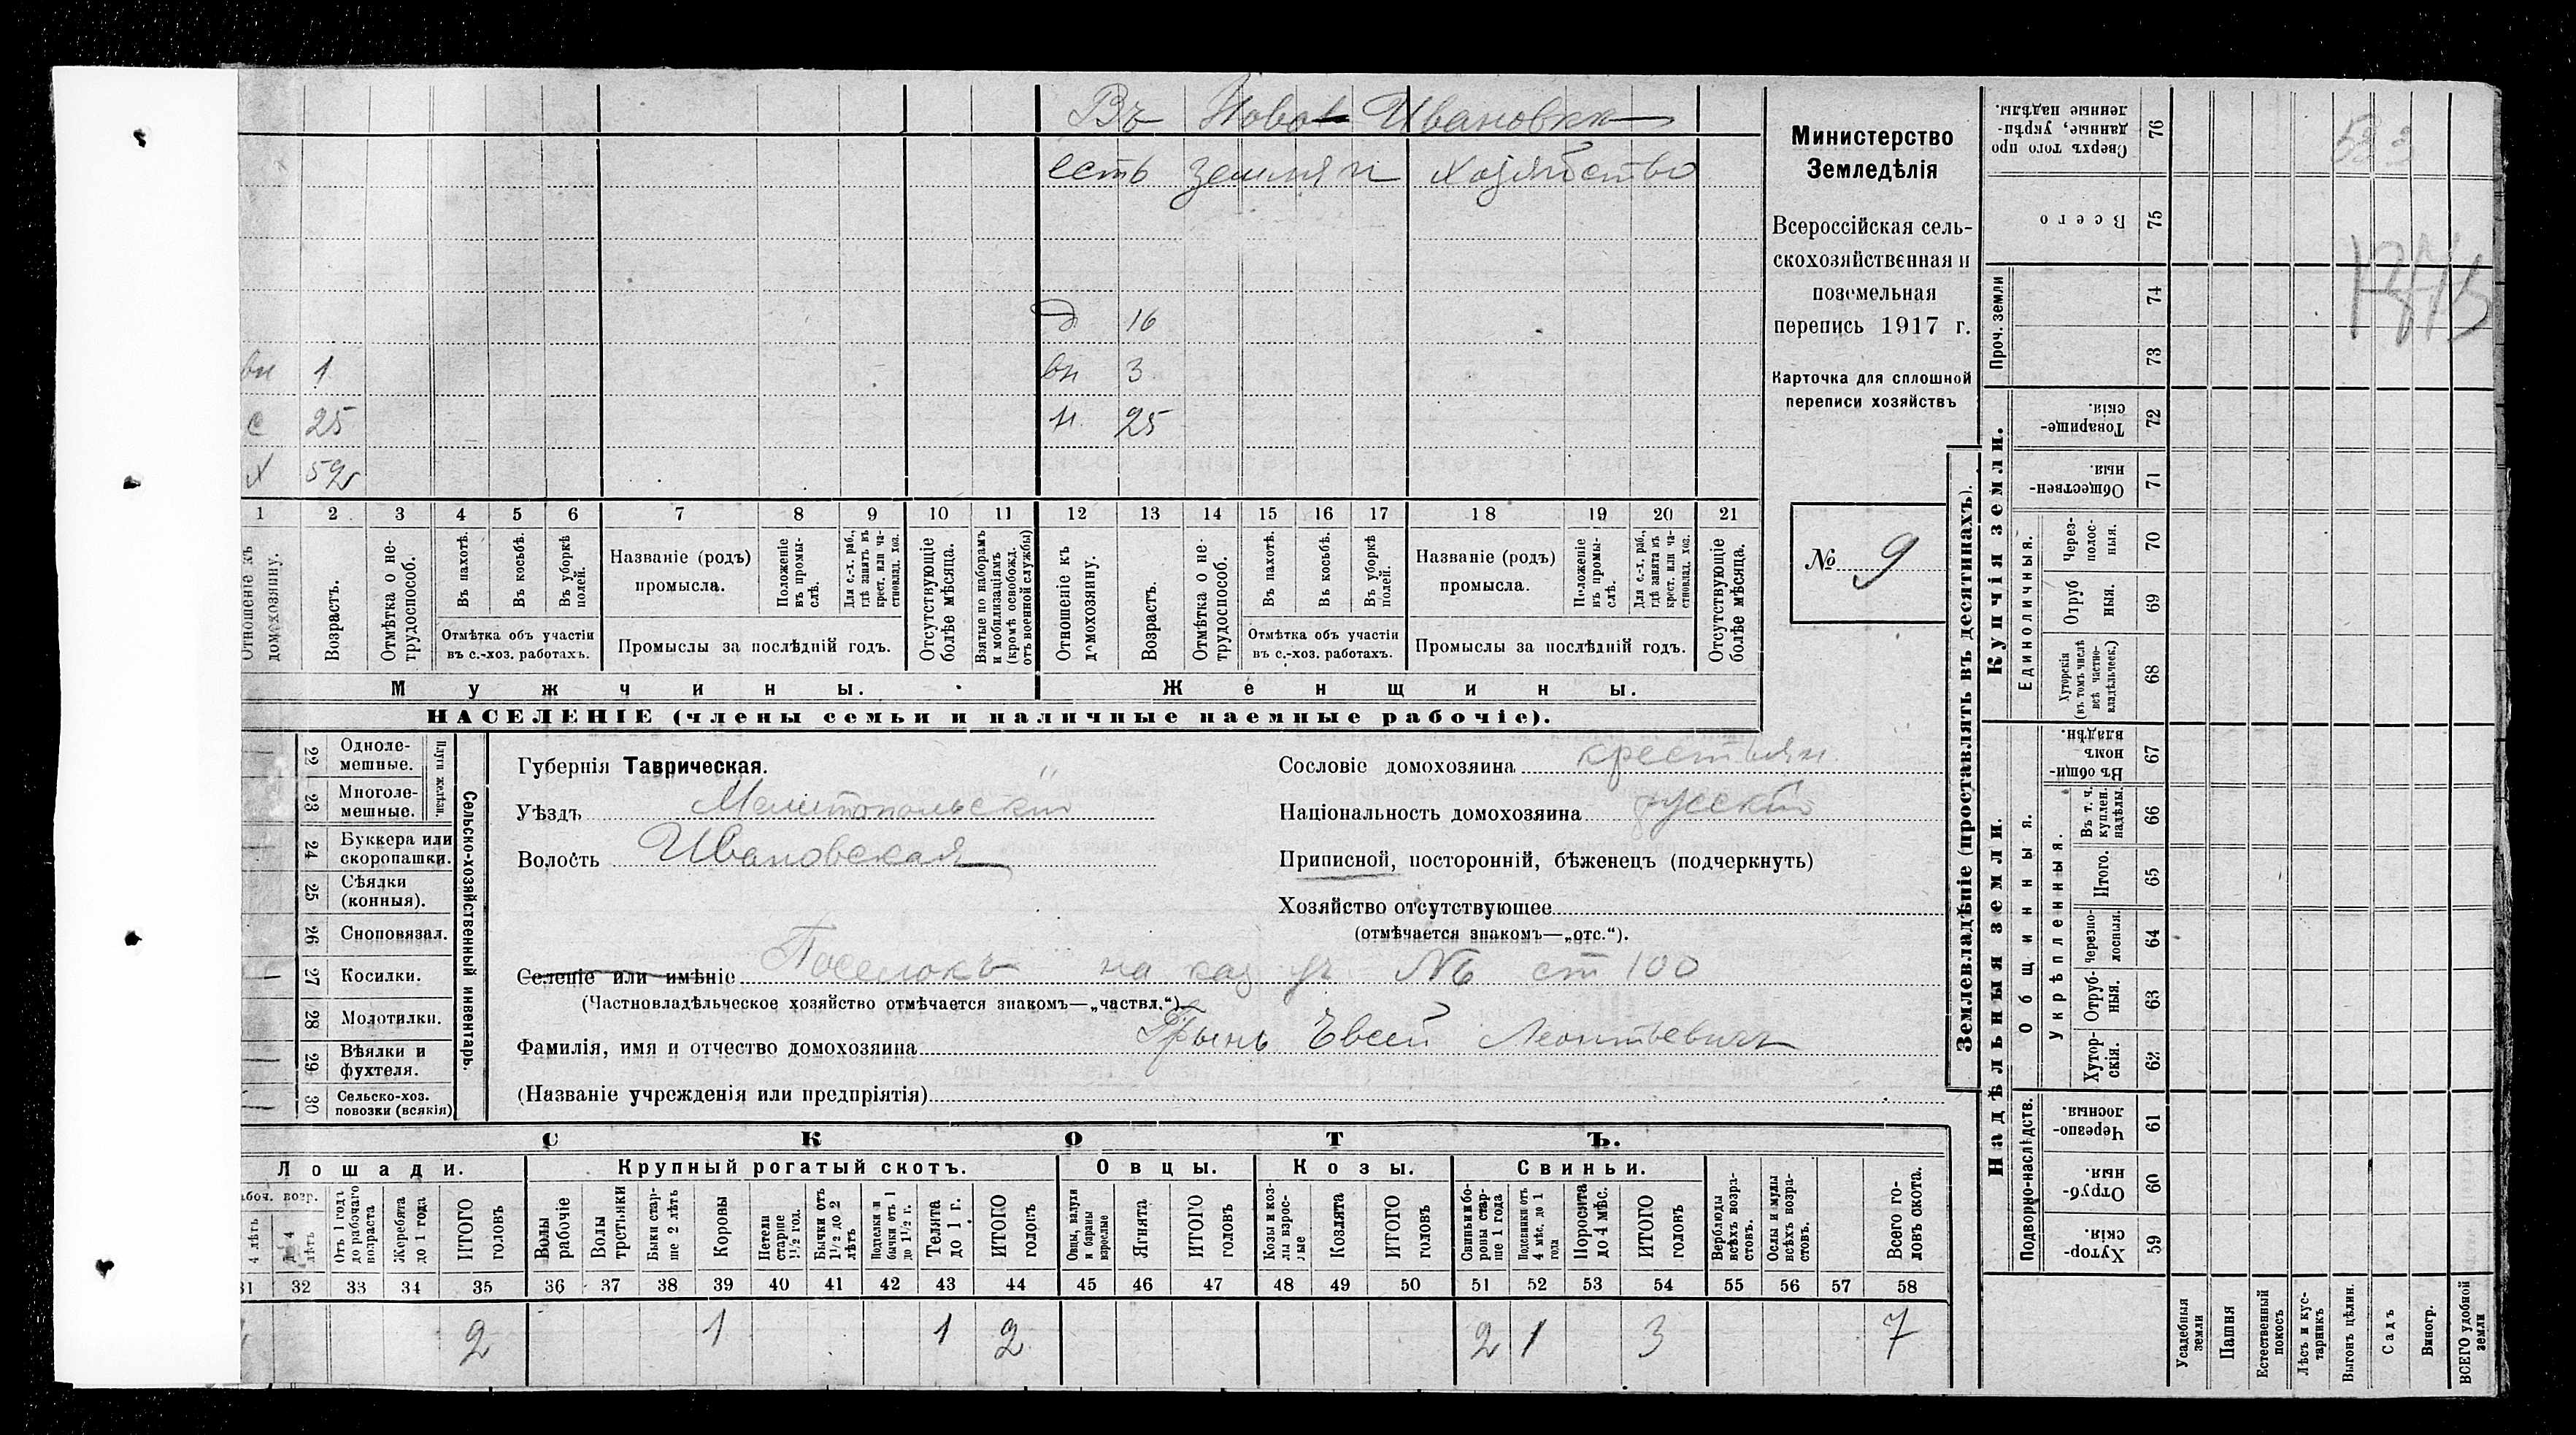 Въ Ново Ивановкѣ
есть земельн хозяйство
д 16
вн 1 вн 3
с 25 н 25
х 59
1 2 3 4 5 6 7 8 9 10 11 12 13 14 15 16 17 18 19 20 21
Отношеніе къ домохозяину.
Возрастъ.
Отмѣтка о не-
трудоспособ.
Въ пахотѣ.
Въ косьбѣ.
Въ уборкѣ
полей.
Отмѣтка объ участіи
въ с.-хоз. работахъ.
Названіе (родъ)
промысла.
Положеніе
въ промы-
слѣ.
Для с.-х. раб.,
гдѣ занятъ въ
крест. или ча-
стновлад. хоз.
Промыслы за послѣдній годъ.
Отсутствующіе
болѣе мѣсяца.
Взятые по наборамъ
и мобилизаціямъ
(кромѣ освобожд.
отъ военной службы)
Отношеніе къ
домохозяину.
Возрастъ.
Отмѣтка о не-
трудоспособ.
Въ пахотѣ.
Въ косьбѣ.
Въ уборкѣ
полей.
Отмѣтка объ участіи
въ с.-хоз. работахъ.
Названіе (родъ)
промысла.
Положеніе
въ промы-
слѣ.
Для с.-х. раб.,
гдѣ занята въ
крест. или ча-
стновлад. хоз.
Промыслы за послѣдній годъ.
Отсутствующіе
болѣе мѣсяца.
Мужчины.
Женщины.
НАСЕЛЕНІЕ (члены семьи и наличные наемные рабочіе).
Министерство
Земледѣлія
Всероссійская сель-
скохозяйственная и
поземельная
перепись 1917 г.
Карточка для сплошной
переписи хозяйствъ
№ 9
22 Одноле-
мешные.
23 Многоле-
мешные.
Плуги желѣзн.
24 Буккера или
скоропашки.
25 Сѣялки
(конныя).
26 Сноповязал.
27 Косилки.
28 Молотилки.
29 Вѣялки и
фухтеля.
30 Сельско-хоз.
повозки (всякія)
Сельско-хозяйственный инвентарь.
Губернія Таврическая.
Уѣздъ Мелитопольскій
Волость Ивановская
Сословіе домохозяина крестьян.
Національность домохозяина русскій
Приписной, посторонній, бѣженецъ (подчеркнуть)
Хозяйство отсутствующее
(отмѣчается знакомъ—„отс.“).
Селеніе или имѣніе Поселокъ на каз уч № ст 100
(Частновладѣльческое хозяйство отмѣчается знакомъ—„частвл.“)
Фамилія, имя и отчество домохозяина Грынь Евсей Леонтьевич
(Названіе учрежденія или предпріятія)
СКОТЪ.
Лошади.
боч. возр.
4 лѣтъ
до 4
лѣтъ
Отъ 1 годъ
до рабочаго
возраста
Жеребята
до 1 года
ИТОГО
головъ
Крупный рогатый скотъ.
Волы
рабочіе
Волы
третьяки
Быки стар-
ше 2 лѣтъ
Коровы
Нетели
старше
1½ год.
Бычки отъ
1½ до 2
лѣтъ
Подтелки и
бычки отъ 1
до 1½ г.
Телята
до 1 г.
ИТОГО
головъ
Овцы.
Овцы, валухи
и бараны
взрослые
Ягнята
ИТОГО
головъ
Козы.
Козы и коз-
лы взрос-
лые
Козлята
ИТОГО
головъ
Свиньи.
Свиньи и бо-
ровы стар-
ше 1 года
Подсвинки отъ
4 мѣс. до 1
года
Поросята
до 4 мѣс.
ИТОГО
головъ
Верблюды
всѣхъ возра-
стовъ.
Ослы и мулы
всѣхъ возра-
стовъ.
Всего го-
ловъ скота.
31 32 33 34 35 36 37 38 39 40 41 42 43 44 45 46 47 48 49 50 51 52 53 54 55 56 57 58
2 1 1 2 2 1 3 7
Землевладѣніе (проставлять въ десятинахъ).
Надѣльныя земли.
Подворно-наслѣдств.
59 Хутор-
скія.
60 Отруб-
ныя.
61 Черезпо-
лосныя.
Общинныя.
Укрѣпленныя.
62 Хутор-
скія.
63 Отруб-
ныя.
64 Черезпо-
лосныя.
65 Итого.
66 Въ т. ч.
куплен.
надѣлы.
67 Въ общи-
номъ
владѣн.
Купчія земли.
Единоличныя.
68 Хуторскія
(въ томъ числѣ
всѣ частно-
владѣльческ.)
69 Отруб
ныя.
70 Через-
полос-
ныя.
71 Обществен-
ныя.
72 Товарище-
скія.
Проч. земли
73
74
75 Всего
76 Сверхъ того про
данные, укрѣп-
ленные надѣлы.
Усадебныя
земли
Пашня
Естественный
покосъ
Лѣсъ и кус-
тарникъ
Выгонъ цѣлин.
Садъ
Виногр.
ВСЕГО удобной
земли
533